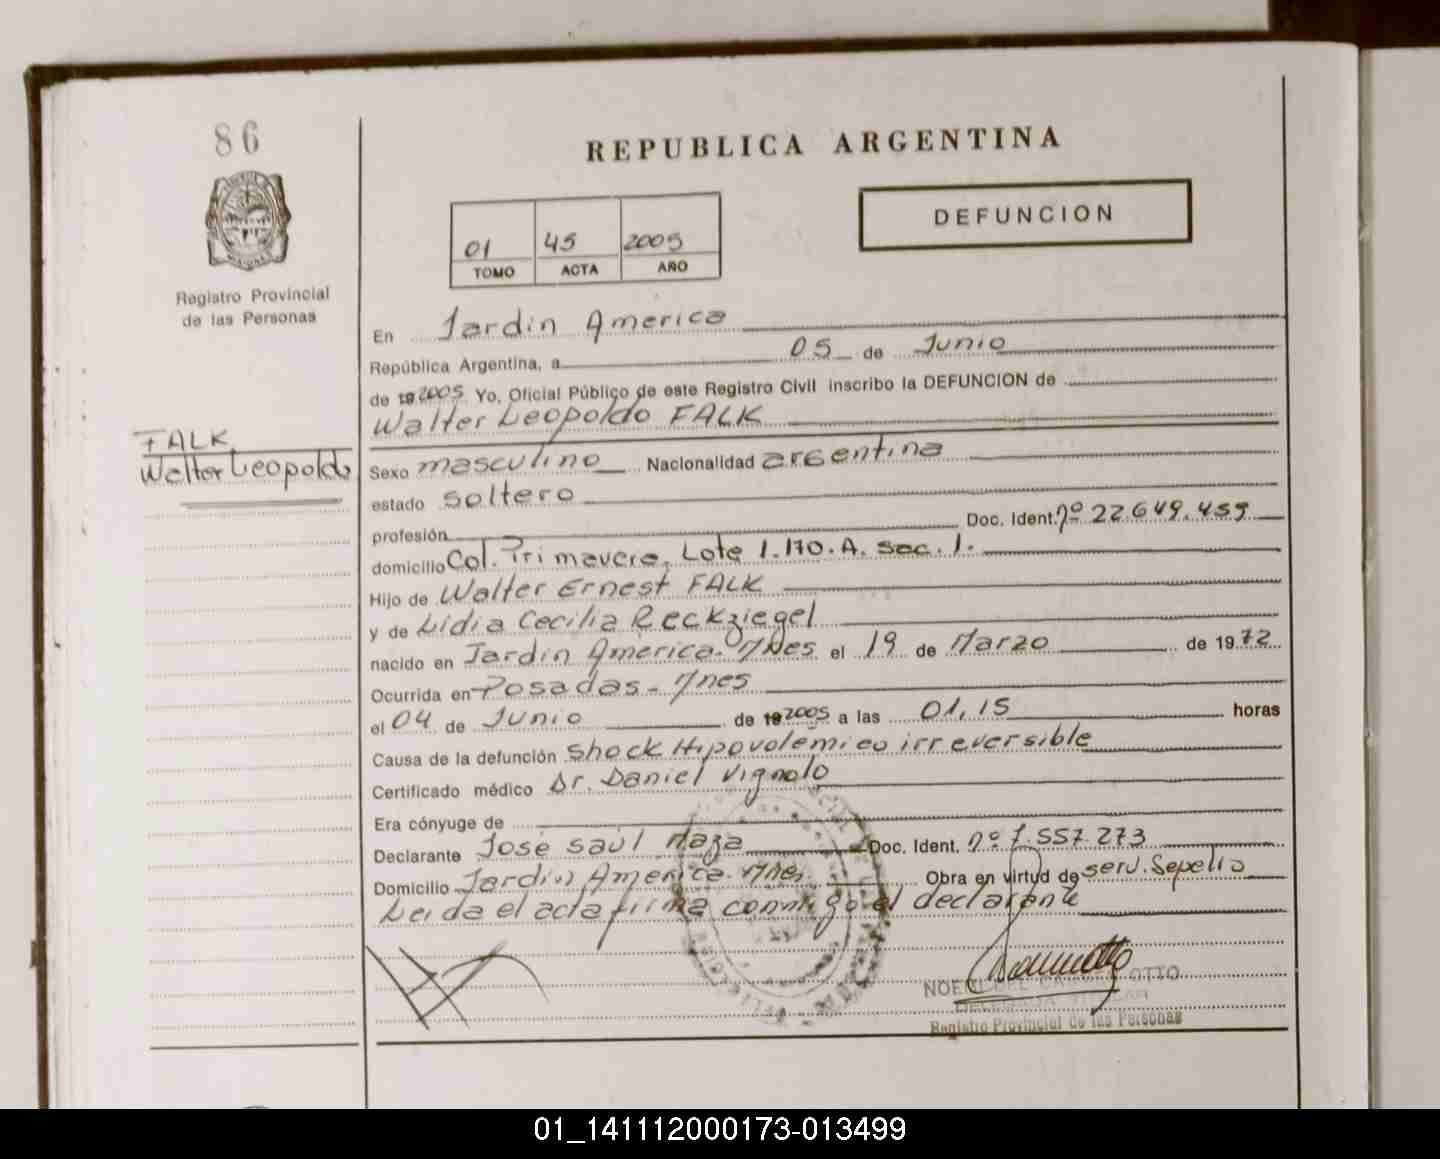 86
REPUBLICA ARGENTINA
DEFUNCION
01 45 2005
TOMO ACTA AÑO
Registro Provincial
de las Personas
En Jardin America
República Argentina, a 05 de Junio
de 19 2005 Yo, Oficial Público de este Registro Civil inscribo la DEFUNCION de
Walter Leopoldo FALK
FALK
Walter Leopoldo
Sexo masculino Nacionalidad argentina
estado soltero
profesión Doc. Ident. nº 22.649.459
domicilio Col. Primavera, Lote 1.170.A. sec. 1.
Hijo de Walter Ernest FALK
y de Lidia Cecilia Reckziegel
nacido en Jardin America - Mnes el 19 de Marzo de 1972
Ocurrida en Posadas - Mnes
el 04 de Junio de 19 2005 a las 01,15 horas
Causa de la defunción Shock Hipovolémico irreversible
Certificado médico Dr. Daniel Vignolo
Era cónyuge de
Declarante José Saúl Maza Doc. Ident. nº 7.557.273
Domicilio Jardin America - Mnes Obra en virtud de serv. Sepelio
Leida el acta firma conmigo el declarante
OTTO
Registro Provincial de las Personas
01_141112000173-013499